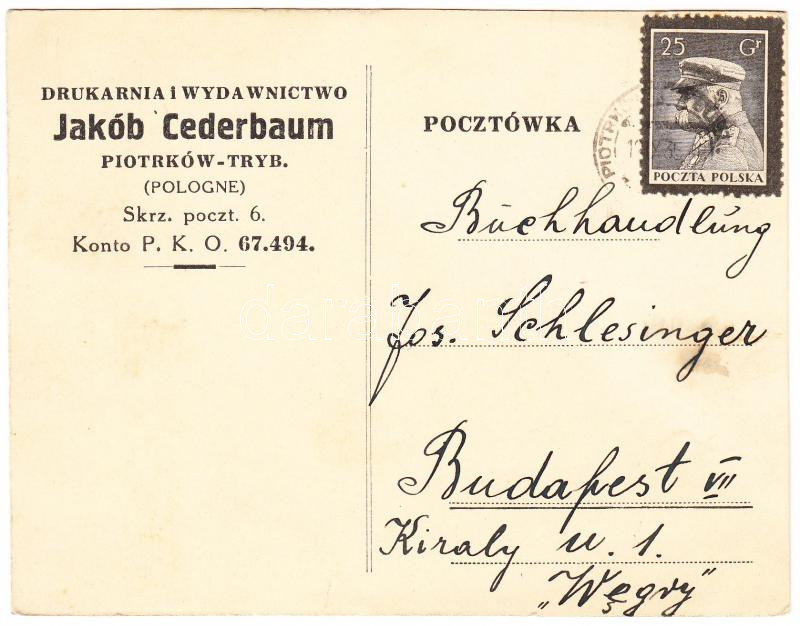 DRUKARNIA i WYDAWNICTWO
Jakób Cederbaum
PIOTRKÓW-TRYB.
(POLOGNE)
Skrz. poczt. 6.
Konto P. K. O. 67.494.
POCZTÓWKA
25 Gr
POCZTA POLSKA
Buchhandlung
Jos. Schlesinger
Budapest VII
Kiraly u. 1.
„Węgry"